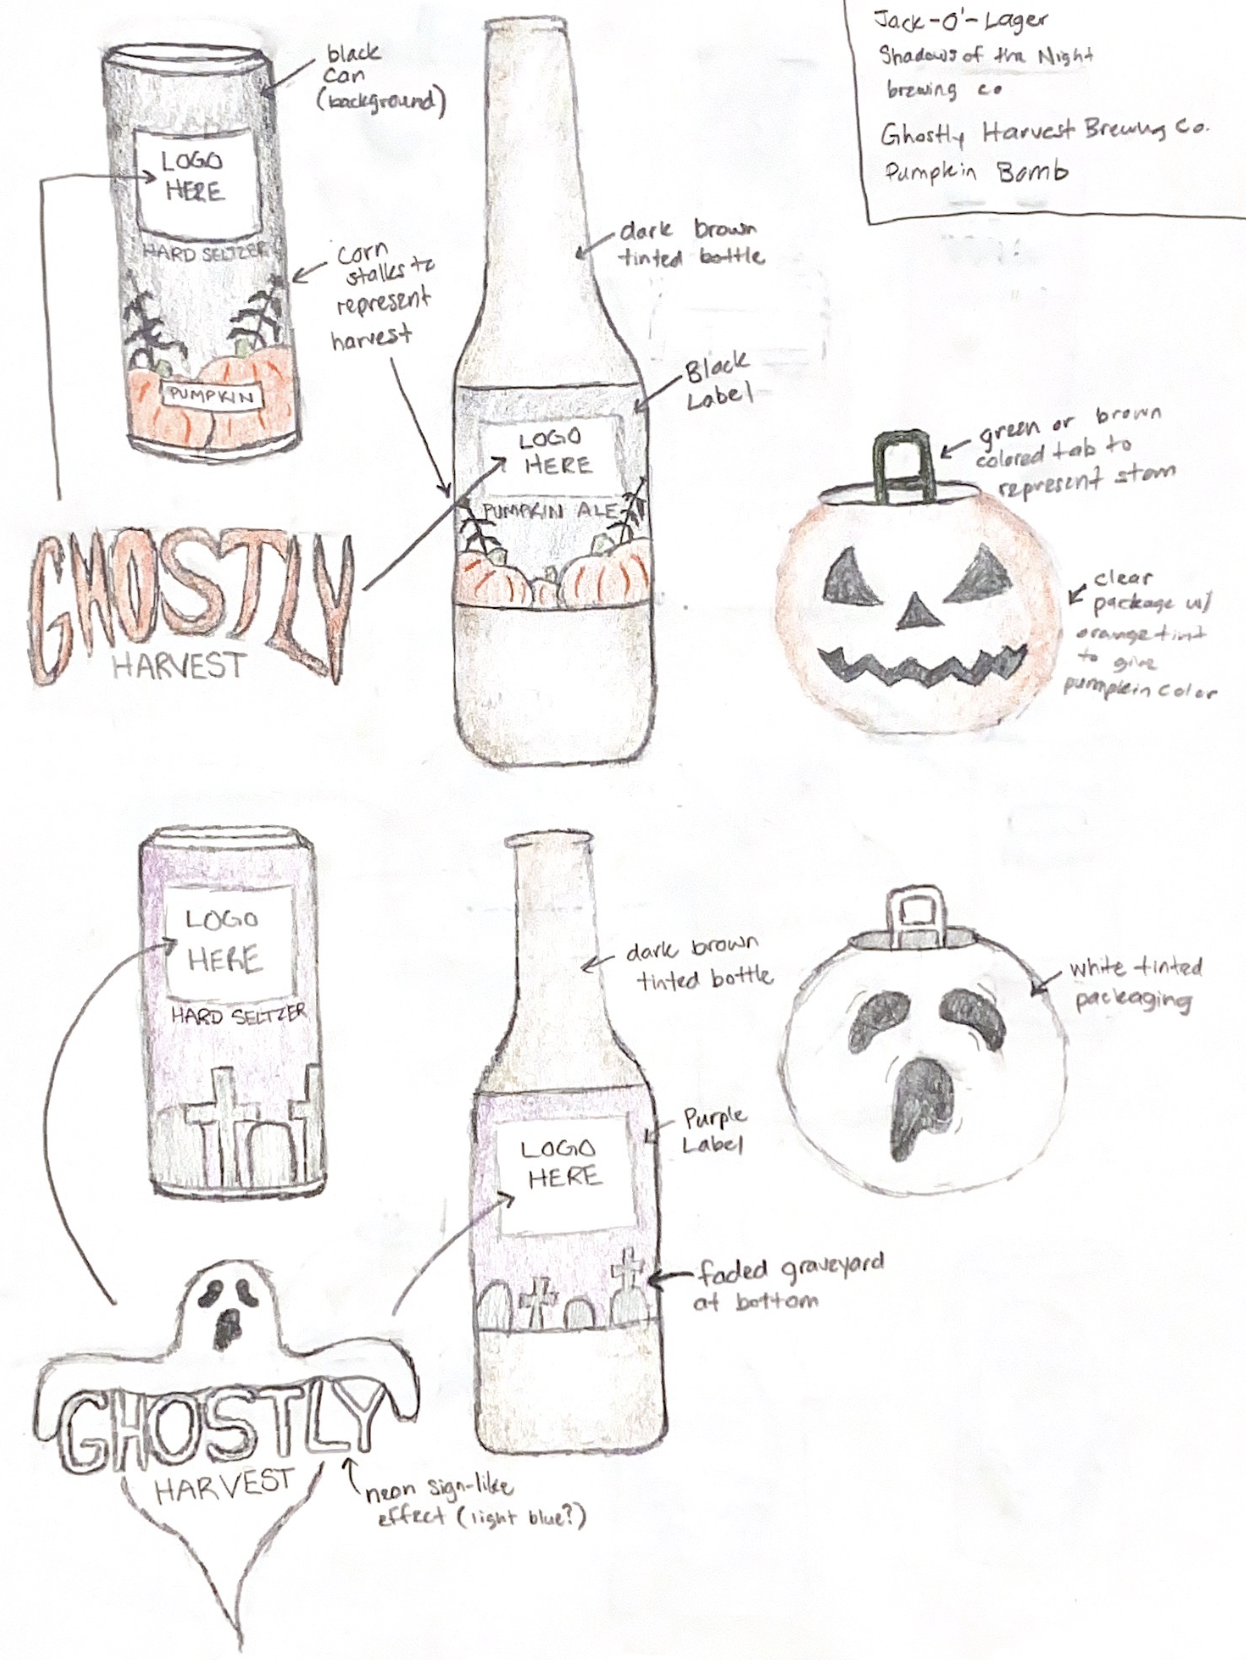 Jack-O'-Lager
Shadows of the Night
brewing co
Ghostly Harvest Brewing Co.
Pumpkin Bomb
black
can
(background)
LOGO
HERE
HARD SELTZER
PUMPKIN
corn
stalks to
represent
harvest
dark brown
tinted bottle
Black
Label
LOGO
HERE
PUMPKIN ALE
green or brown
colored tab to
represent stem
clear
package w/
orange tint
to give
pumpkin color
GHOSTLY
HARVEST
LOGO
HERE
HARD SELTZER
dark brown
tinted bottle
Purple
Label
LOGO
HERE
faded graveyard
at bottom
white tinted
packaging
GHOSTLY
HARVEST
neon sign-like
effect (light blue?)